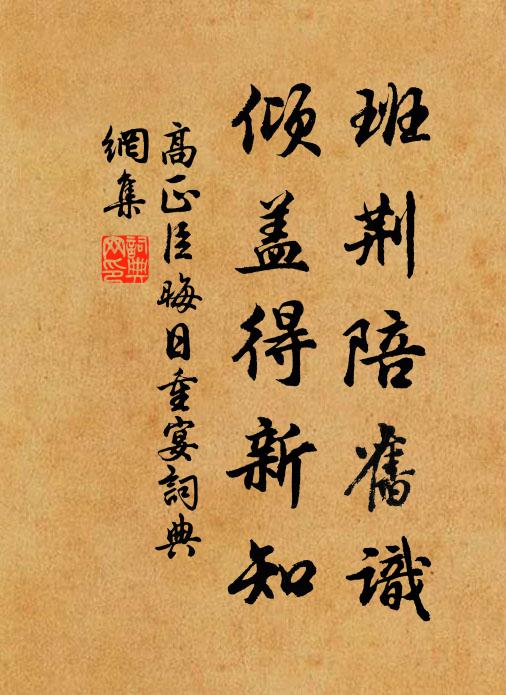 班荆陪舊識
傾盖得新知
高正臣晦日重宴詞典
網集
詞典
網印